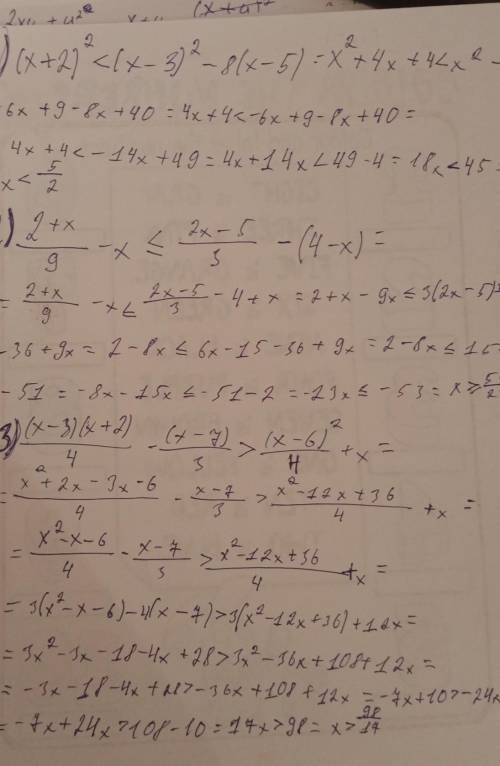 2xu + u²
(x+u)²
)(x+2)² < (x-3)² - 8(x-5) = x² + 4x + 4 < x² -
6x + 9 - 8x + 40 = 4x + 4 < -6x + 9 - 8x + 40 =
4x + 4 < -14x + 49 = 4x + 14x < 49 - 4 = 18x < 45 =
x < 5/2
) (2+x)/9 - x ≤ (2x-5)/3 - (4-x) =
= (2+x)/9 - x ≤ (2x-5)/3 - 4 + x = 2 + x - 9x ≤ 3(2x-5)
-36 + 9x = 2 - 8x ≤ 6x - 15 - 36 + 9x = 2 - 8x ≤ 15
-51 = -8x - 15x ≤ -51 - 2 = -23x ≤ -53 = x ≥
3) ((x-3)(x+2))/4 - (x-7)/3 > (x-6)²/4 + x =
= (x² + 2x - 3x - 6)/4 - (x-7)/3 > (x² - 12x + 36)/4 + x =
= (x² - x - 6)/4 - (x-7)/3 > (x² - 12x + 36)/4 + x =
= 3(x² - x - 6) - 4(x - 7) > 3(x² - 12x + 36) + 12x =
= 3x² - 3x - 18 - 4x + 28 > 3x² - 36x + 108 + 12x =
= -3x - 18 - 4x + 28 > -36x + 108 + 12x = -7x + 10 > -24x
= -7x + 24x > 108 - 10 = 17x > 98 = x > 98/17